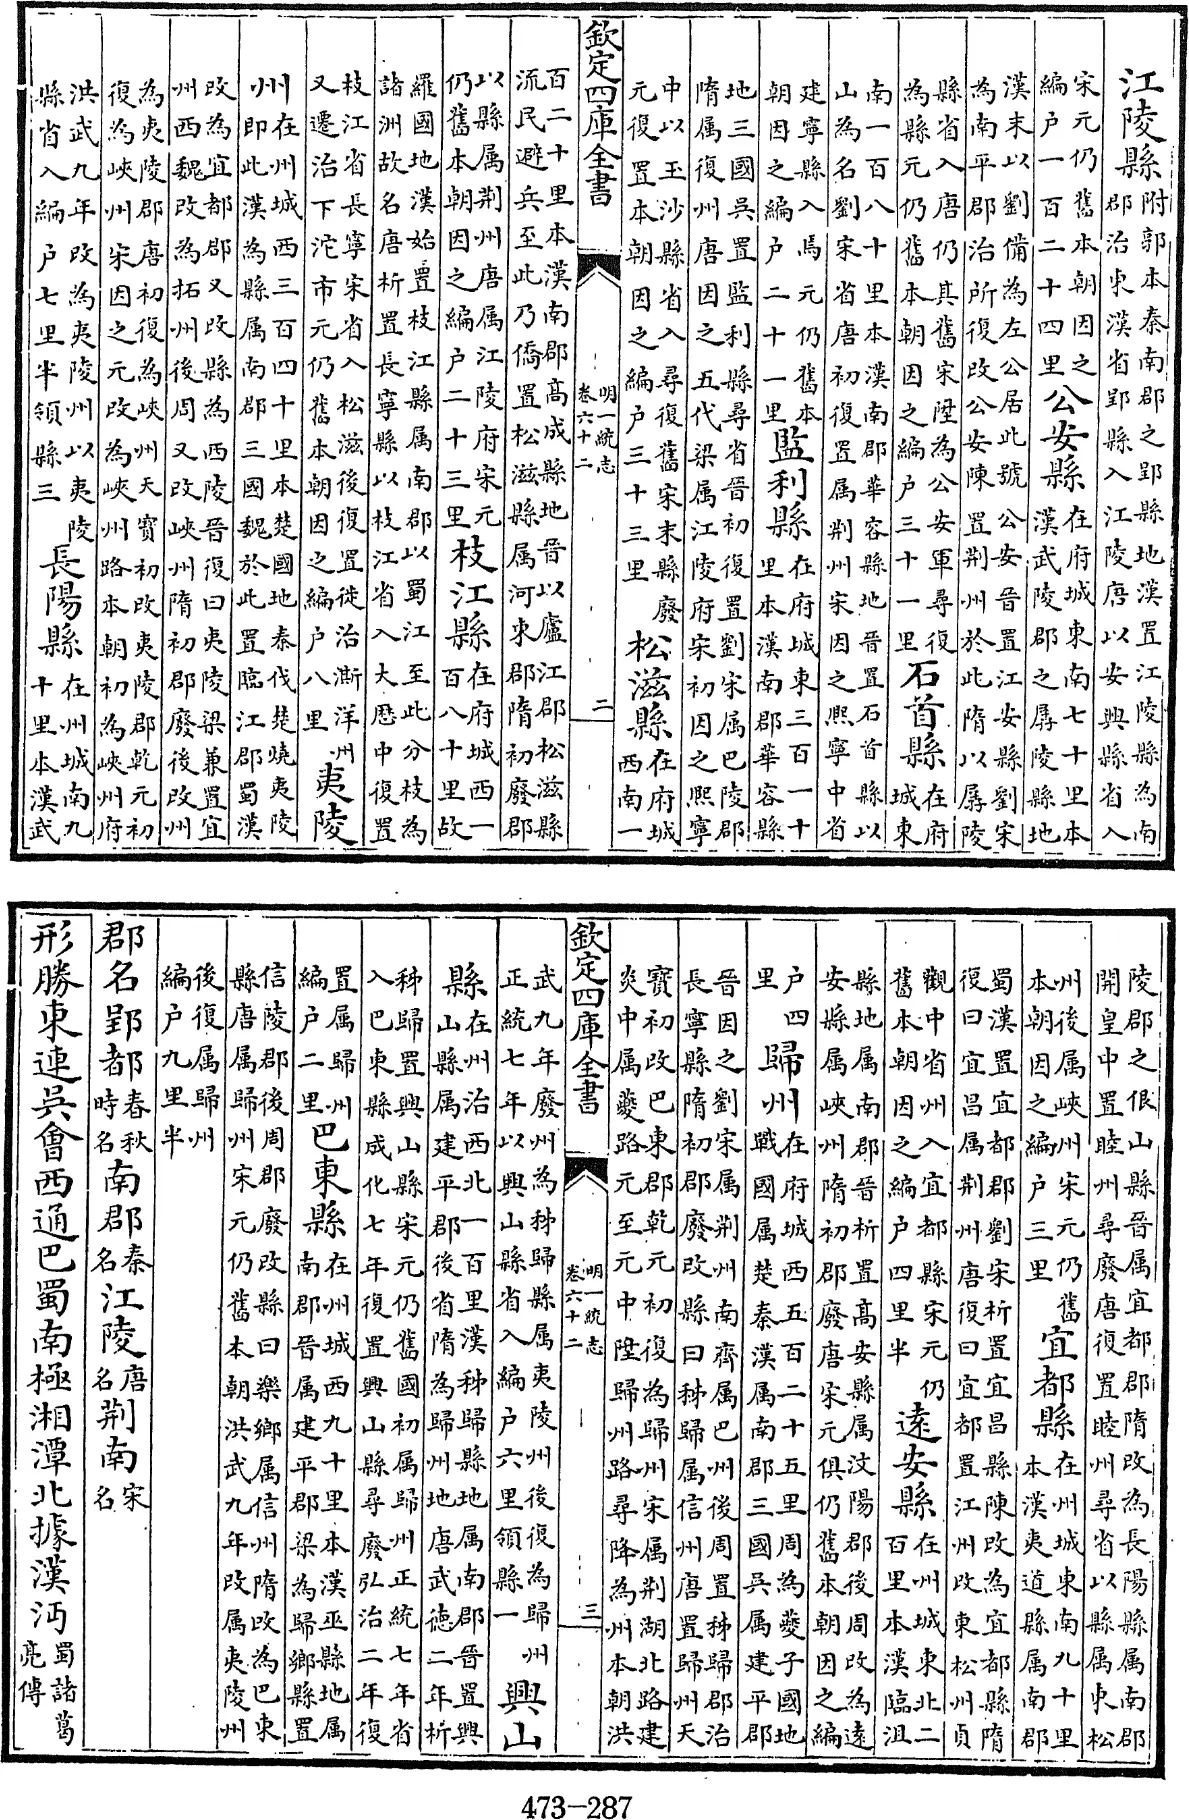 江陵縣附郭本秦南郡之郢縣地漢置江陵縣為南
郡治東漢省郢縣入江陵唐以安興縣省入
宋元仍舊本朝因之
編户一百二十四里公安縣在府城東南七十里本
漢武陵郡之孱陵縣地
漢末以劉備為左公居此號公安晉置江安縣劉宋
為南平郡治所復改公安陳置荆州於此隋以孱陵
縣省入唐仍其舊宋陞為公安軍尋復
為縣元仍舊本朝因之編户三十一里石首縣在府
城東
南一百八十里本漢南郡華容縣地晉置石首縣以
山為名劉宋省唐初復置属荆州宋因之熙寧中省
建寧縣入焉元仍舊本
朝因之編户二十一里監利縣在府城東三百一十
里本漢南郡華容縣
地三國吳置監利縣尋省晉初復置劉宋属巴陵郡
隋属復州唐因之五代梁属江陵府宋初因之熙寧
中以玉沙縣省入尋復舊宋末縣廢
元復置本朝因之編户三十三里松滋縣在府城
西南一
欽定四庫全書
明一統志
卷六十二
二
百二十里本漢南郡高成縣地晉以廬江郡松滋縣
流民避兵至此乃僑置松滋縣属河東郡隋初廢郡
以縣属荆州唐属江陵府宋元
仍舊本朝因之編户二十三里枝江縣在府城西一
百八十里故
羅國地漢始置枝江縣属南郡以蜀江至此分枝為
諸洲故名唐析置長寧縣以枝江省入大厯中復置
枝江省長寧宋省入松滋後復置徙治澌洋洲
又遷治下沱市元仍舊本朝因之編户八里夷陵
州在州城西三百四十里本楚國地秦伐楚燒夷陵
即此漢為縣属南郡三國魏於此置臨江郡蜀漢
改為宜都郡又改縣為西陵晉復曰夷陵梁兼置宜
州西魏改為拓州後周又改峽州隋初郡廢後改州
為夷陵郡唐初復為峽州天寳初改夷陵郡乾元初
復為峽州宋因之元改為峽州路本朝初為峽州府
洪武九年改為夷陵州以夷陵
縣省入編户七里半領縣三長陽縣在州城南九
十里本漢武
陵郡之佷山縣晉属宜都郡隋改為長陽縣属南郡
開皇中置睦州尋廢唐復置睦州尋省以縣属東松
州後属峽州宋元仍舊
本朝因之編户三里宜都縣在州城東南九十里
本漢夷道縣属南郡
蜀漢置宜都郡劉宋析置宜昌縣陳改為宜都縣隋
復曰宜昌属荆州唐復曰宜都置江州改東松州貞
觀中省州入宜都縣宋元仍
舊本朝因之編户四里半遠安縣在州城東北二
百里本漢臨沮
縣地属南郡晉析置高安縣属汶陽郡後周改為遠
安縣属峽州隋初郡廢唐宋元俱仍舊本朝因之編
户四
里歸州在府城西五百二十五里周為夔子國地
戰國属楚秦漢属南郡三國吳属建平郡
晉因之劉宋属荆州南齊属巴州後周置秭歸郡治
長寧縣隋初郡廢改縣曰秭歸属信州唐置歸州天
寳初改巴東郡乾元初復為歸州宋属荆湖北路建
炎中属夔路元至元中陞歸州路尋降為州本朝洪
欽定四庫全書
明一統志
卷六十二
三
武九年廢州為秭歸縣属夷陵州後復為歸州
正統七年以興山縣省入編户六里領縣一興山
縣在州治西北一百里漢秭歸縣地属南郡晉置興
山縣属建平郡後省隋為歸州地唐武徳二年析
秭歸置興山縣宋元仍舊國初属歸州正統七年省
入巴東縣成化七年復置興山縣尋廢弘治二年復
置属歸州
編户二里巴東縣在州城西九十里本漢巫縣地属
南郡晉属建平郡梁為歸鄉縣置
信陵郡後周郡廢改縣曰樂鄉属信州隋改為巴東
縣唐属歸州宋元仍舊本朝洪武九年改属夷陵州
後復属歸州
編户九里半
郡名郢都春秋時名南郡秦名江陵唐名荆南宋名
形勝東連吳會西通巴蜀南極湘潭北據漢沔蜀諸葛亮傳
473-287